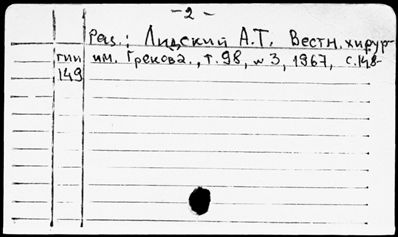 -2-
Рец.: Лидский А.Т. Вестн. хирур-
гии им. Грекова., т. 98, № 3, 1967, с. 148-
149